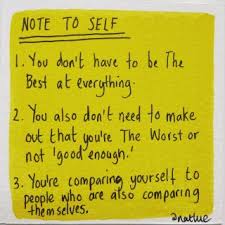 NOTE TO SELF
1. You don't have to be The
Best at everything.
2. You also don't need to make
out that you're The Worst or
not 'good enough.'
3. You're comparing yourself to
people who are also comparing
themselves.
@natlue